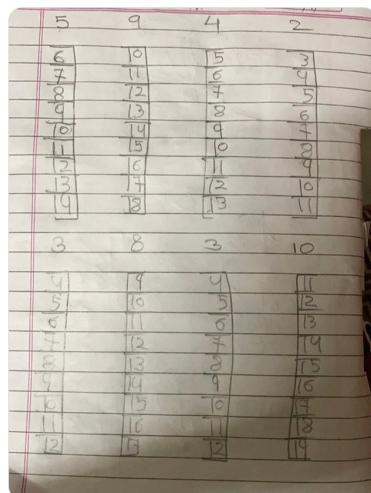 5 9 4 2
6 10 5 3
7 11 6 4
8 12 7 5
9 13 8 6
10 14 9 7
11 15 10 8
12 16 11 9
13 17 12 10
14 18 13 11
3 8 3 10
4 9 4 11
5 10 5 12
6 11 6 13
7 12 7 14
8 13 8 15
9 14 9 16
10 15 10 17
11 16 11 18
12 17 12 19